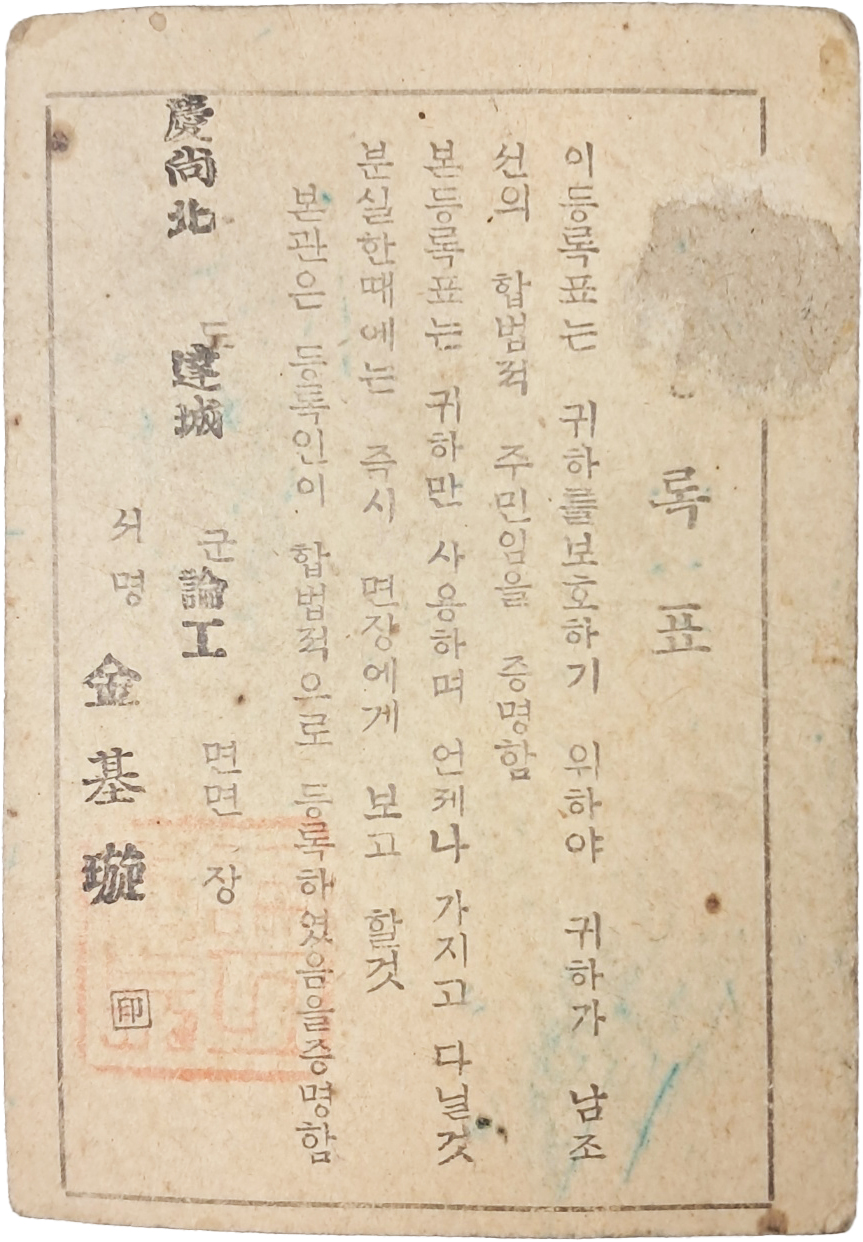 록표
이등록표는 귀하를보호하기 위하야 귀하가 남조
선의 합법적 주민임을 증명함
본등록표는 귀하만 사용하며 언제나 가지고 다닐것
분실한때에는 즉시 면장에게 보고 할것
본관은 등록인이 합법적으로 등록하였음을증명함
慶尙北 도 達城 군 論工 면면장
서명 金基璇 印